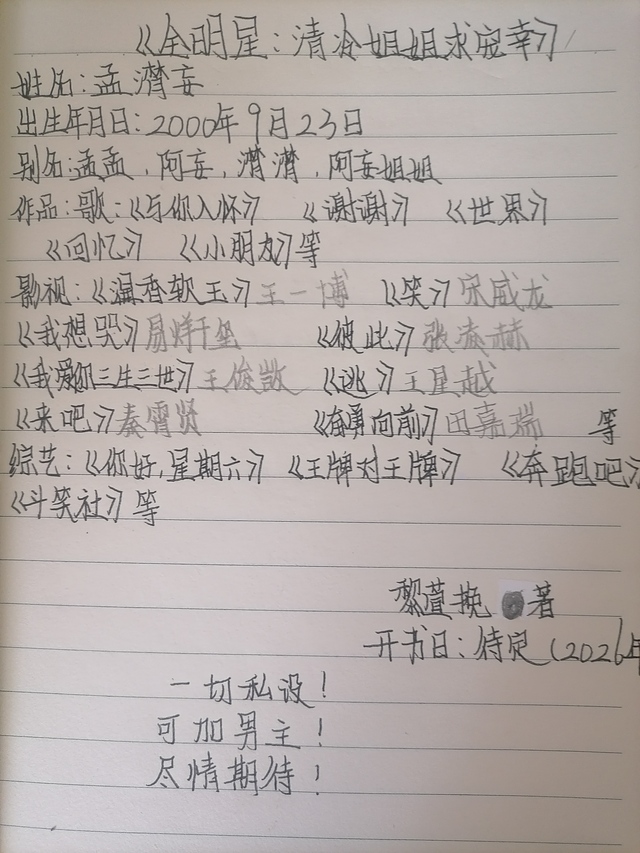 《全明星：清冷姐姐求宠幸》
姓名：孟濟妄
出生年月日：2000年9月23日
别名：孟孟，阿妄，濟濟，阿妄姐姐
作品：歌：《与你入怀》 《谢谢》 《世界》
《回忆》 《小朋友》等
影视：《温香软玉》王一博 《笑》宋威龙
《我想哭》易烊千玺 《彼此》张凌赫
《我爱你三生三世》王俊凯 《逃》王星越
《来吧》秦霄贤 《奋勇向前》田嘉瑞 等
综艺：《你好，星期六》 《王牌对王牌》 《奔跑吧》
《斗笑社》等
黎萱挽 著
开书日：待定（2026年
一切私设！
可加男主！
尽情期待！